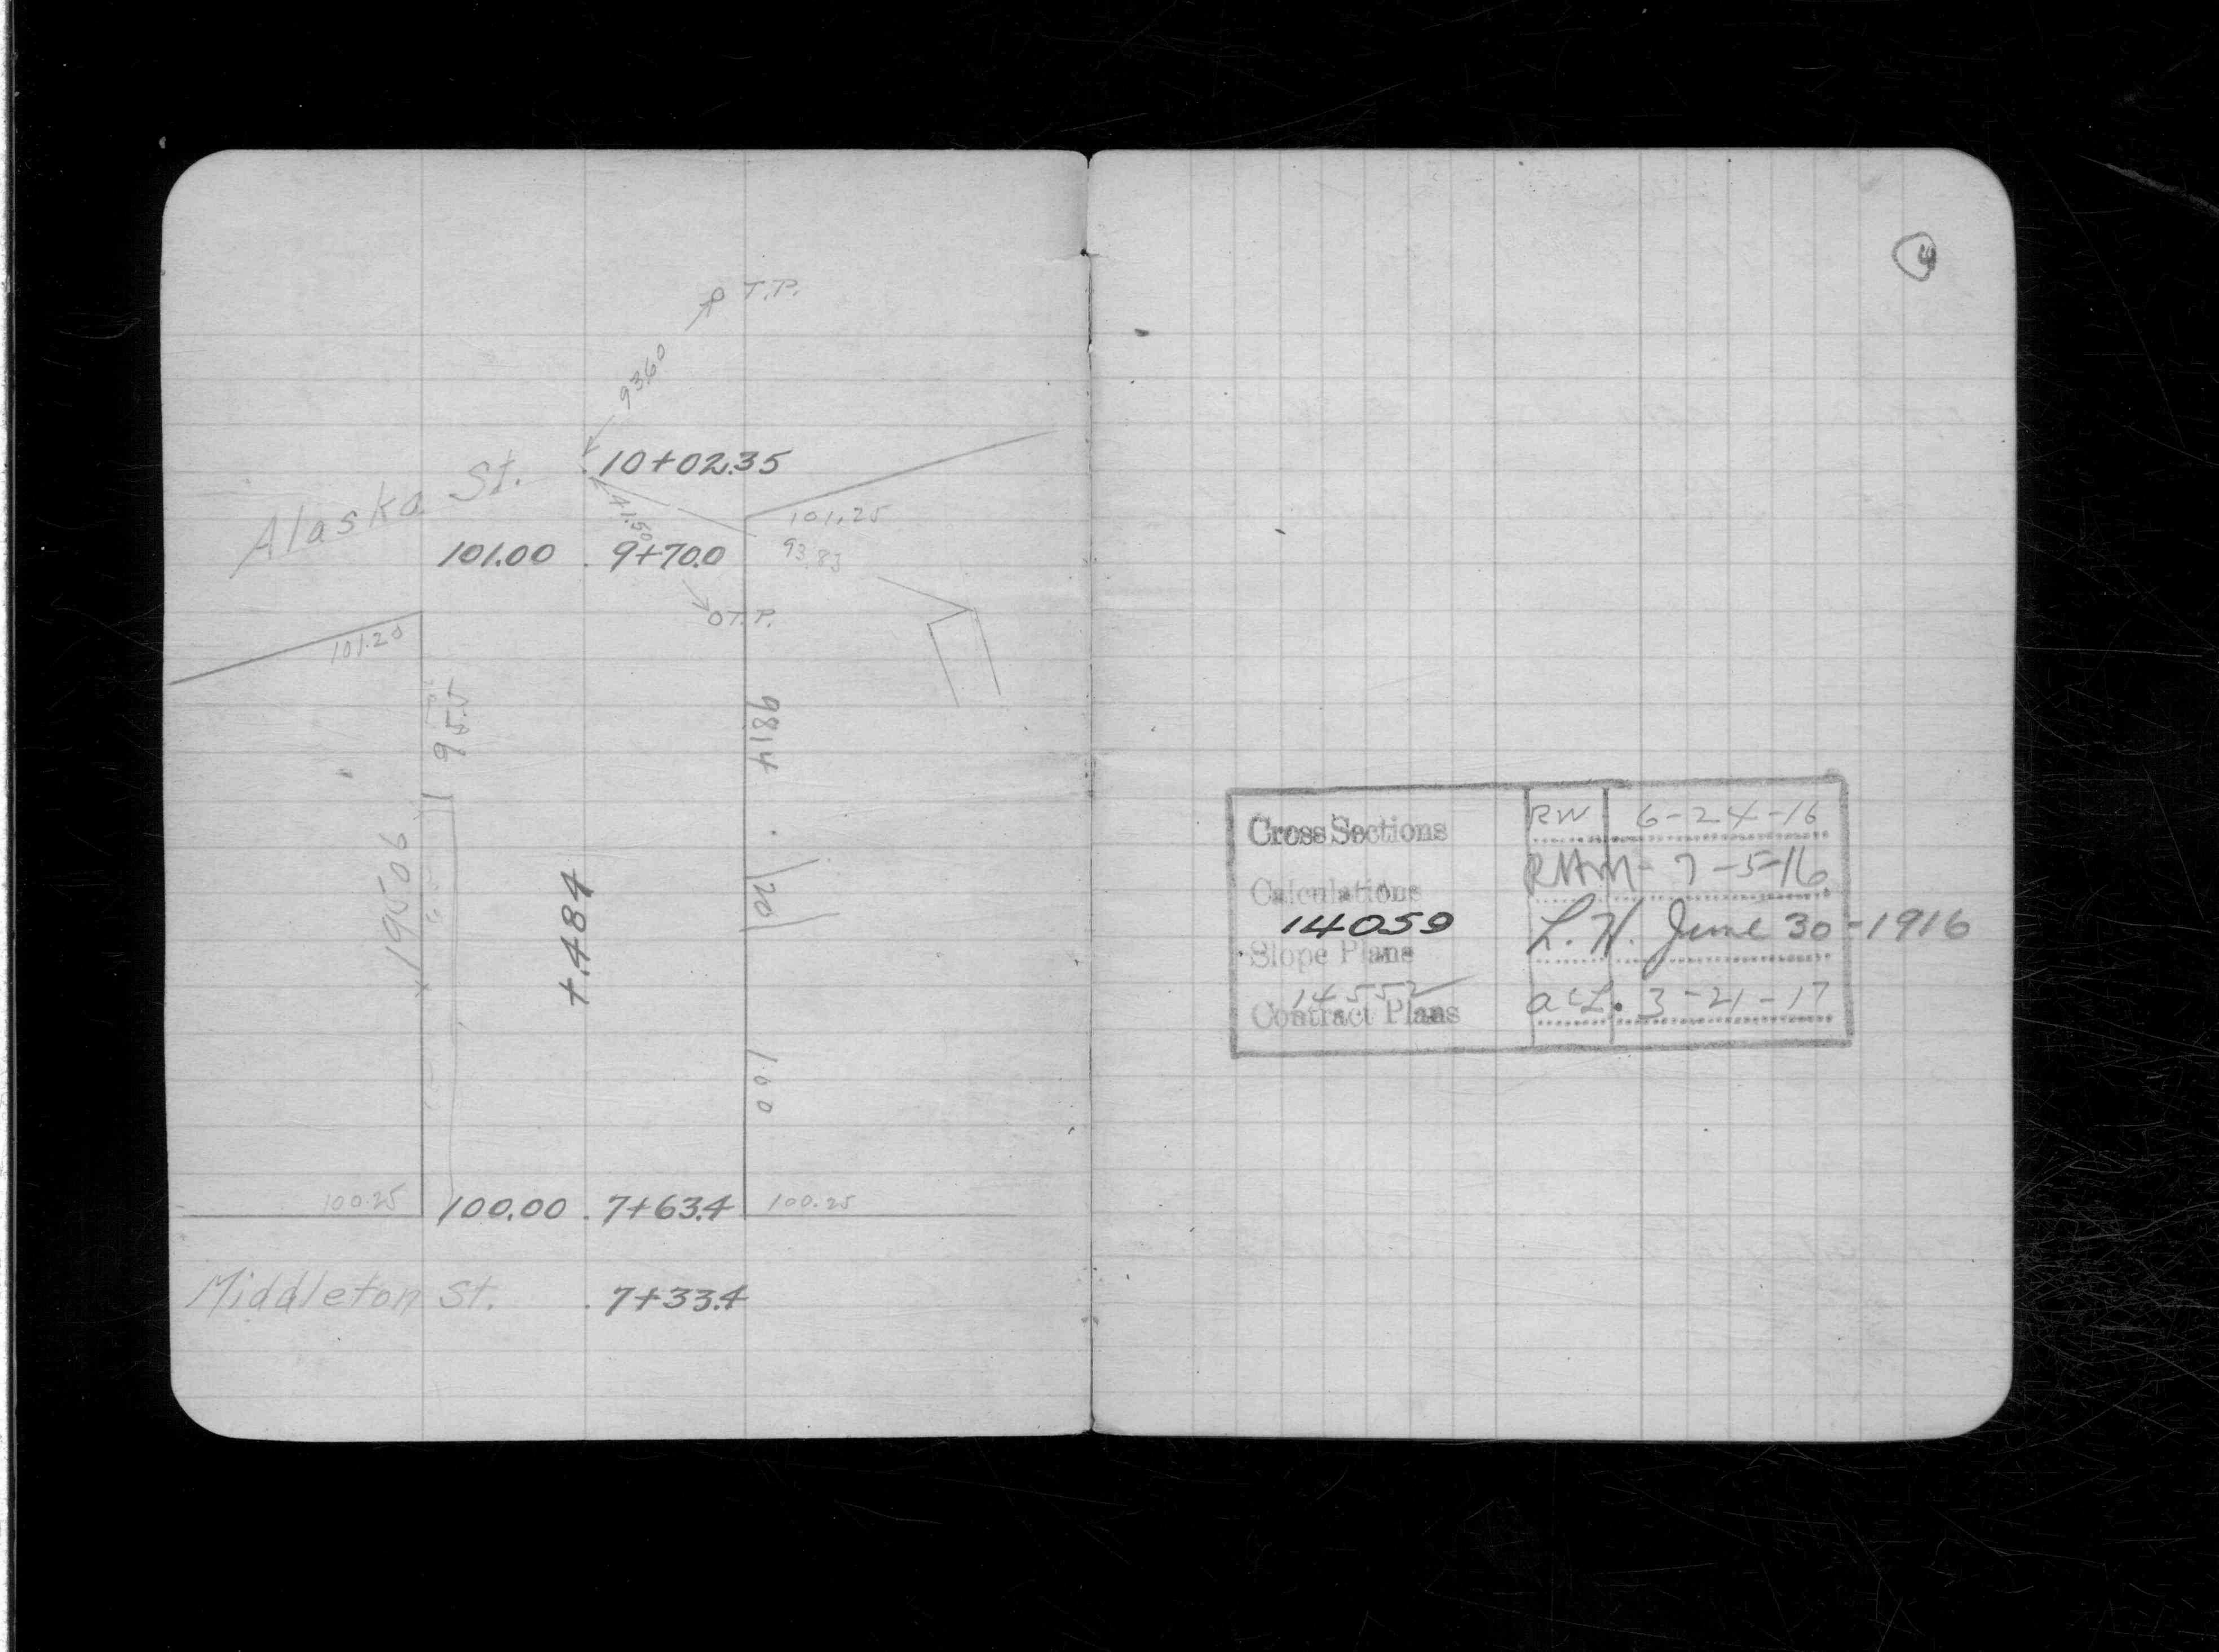 T.P.
93.60
Alaska St.
10+02.35
41.50
101.25
101.00
9+70.0
93.83
T.P.
101.20
95.5
98.14
195.06
+.484
20
100
100.25
100.00
7+63.4
100.25
Middleton St.
7+33.4
4
Cross Sections RW 6-24-16
Calculations RHM- 7-5-16
14059
Slope Plans L.H. June 30-1916
14552
Contract Plans acL. 3-21-17